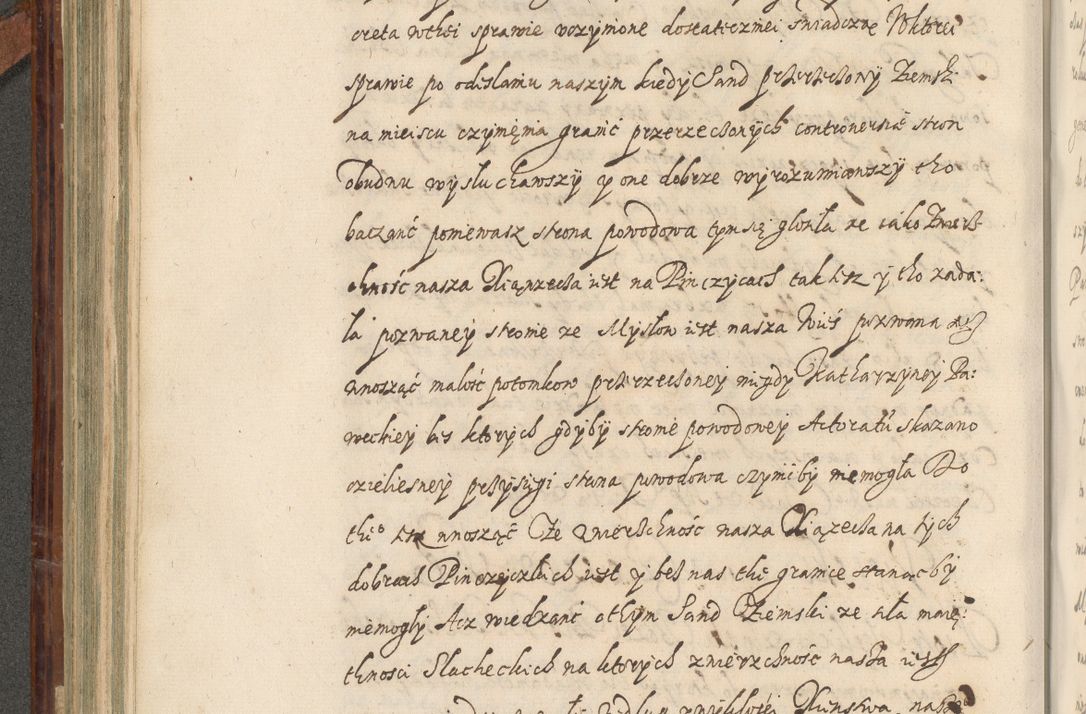 creta wthei sprawie vczynione dostatecznei swiadczoe Wktorei
sprawie po odeslaniu naszym kiedy Sand przerzeczony Ziemsk:
na mieiscu czynienia granic przerzeczonych controuersie stron
Obudnu wysluchawszy y one dobrze wyrozumiawszy tho
bacząnc poniewasz strona powodowa tym się glosiła ze iako zwierz
chność nasza Xiąnzecza iest na Pinczycach tak ksz y tho zada:
la pozwaney stronie ze Mysłow iest nasza Wieś pozwana
wnosząc malość potomkow przerzeczoney niegdy Katharzyney Za:
weckiey bes ktorych gdyby stronie powodowey Actoratu skazano
czielesney przysięgi strona powodowa czynićby niemogła Do
the° wnosząc Ze zwierzchność nasza Xiązecza na tych
dobrach Pinczyczkich iest y bes nas the granice stanącby
niemogły Acz wiedzanc othym Sand Ziemski ze siła maię:
thnosci Slacheckich na ktorych zwierzchność nasza iest
zwykłości Xienstwa nasze°